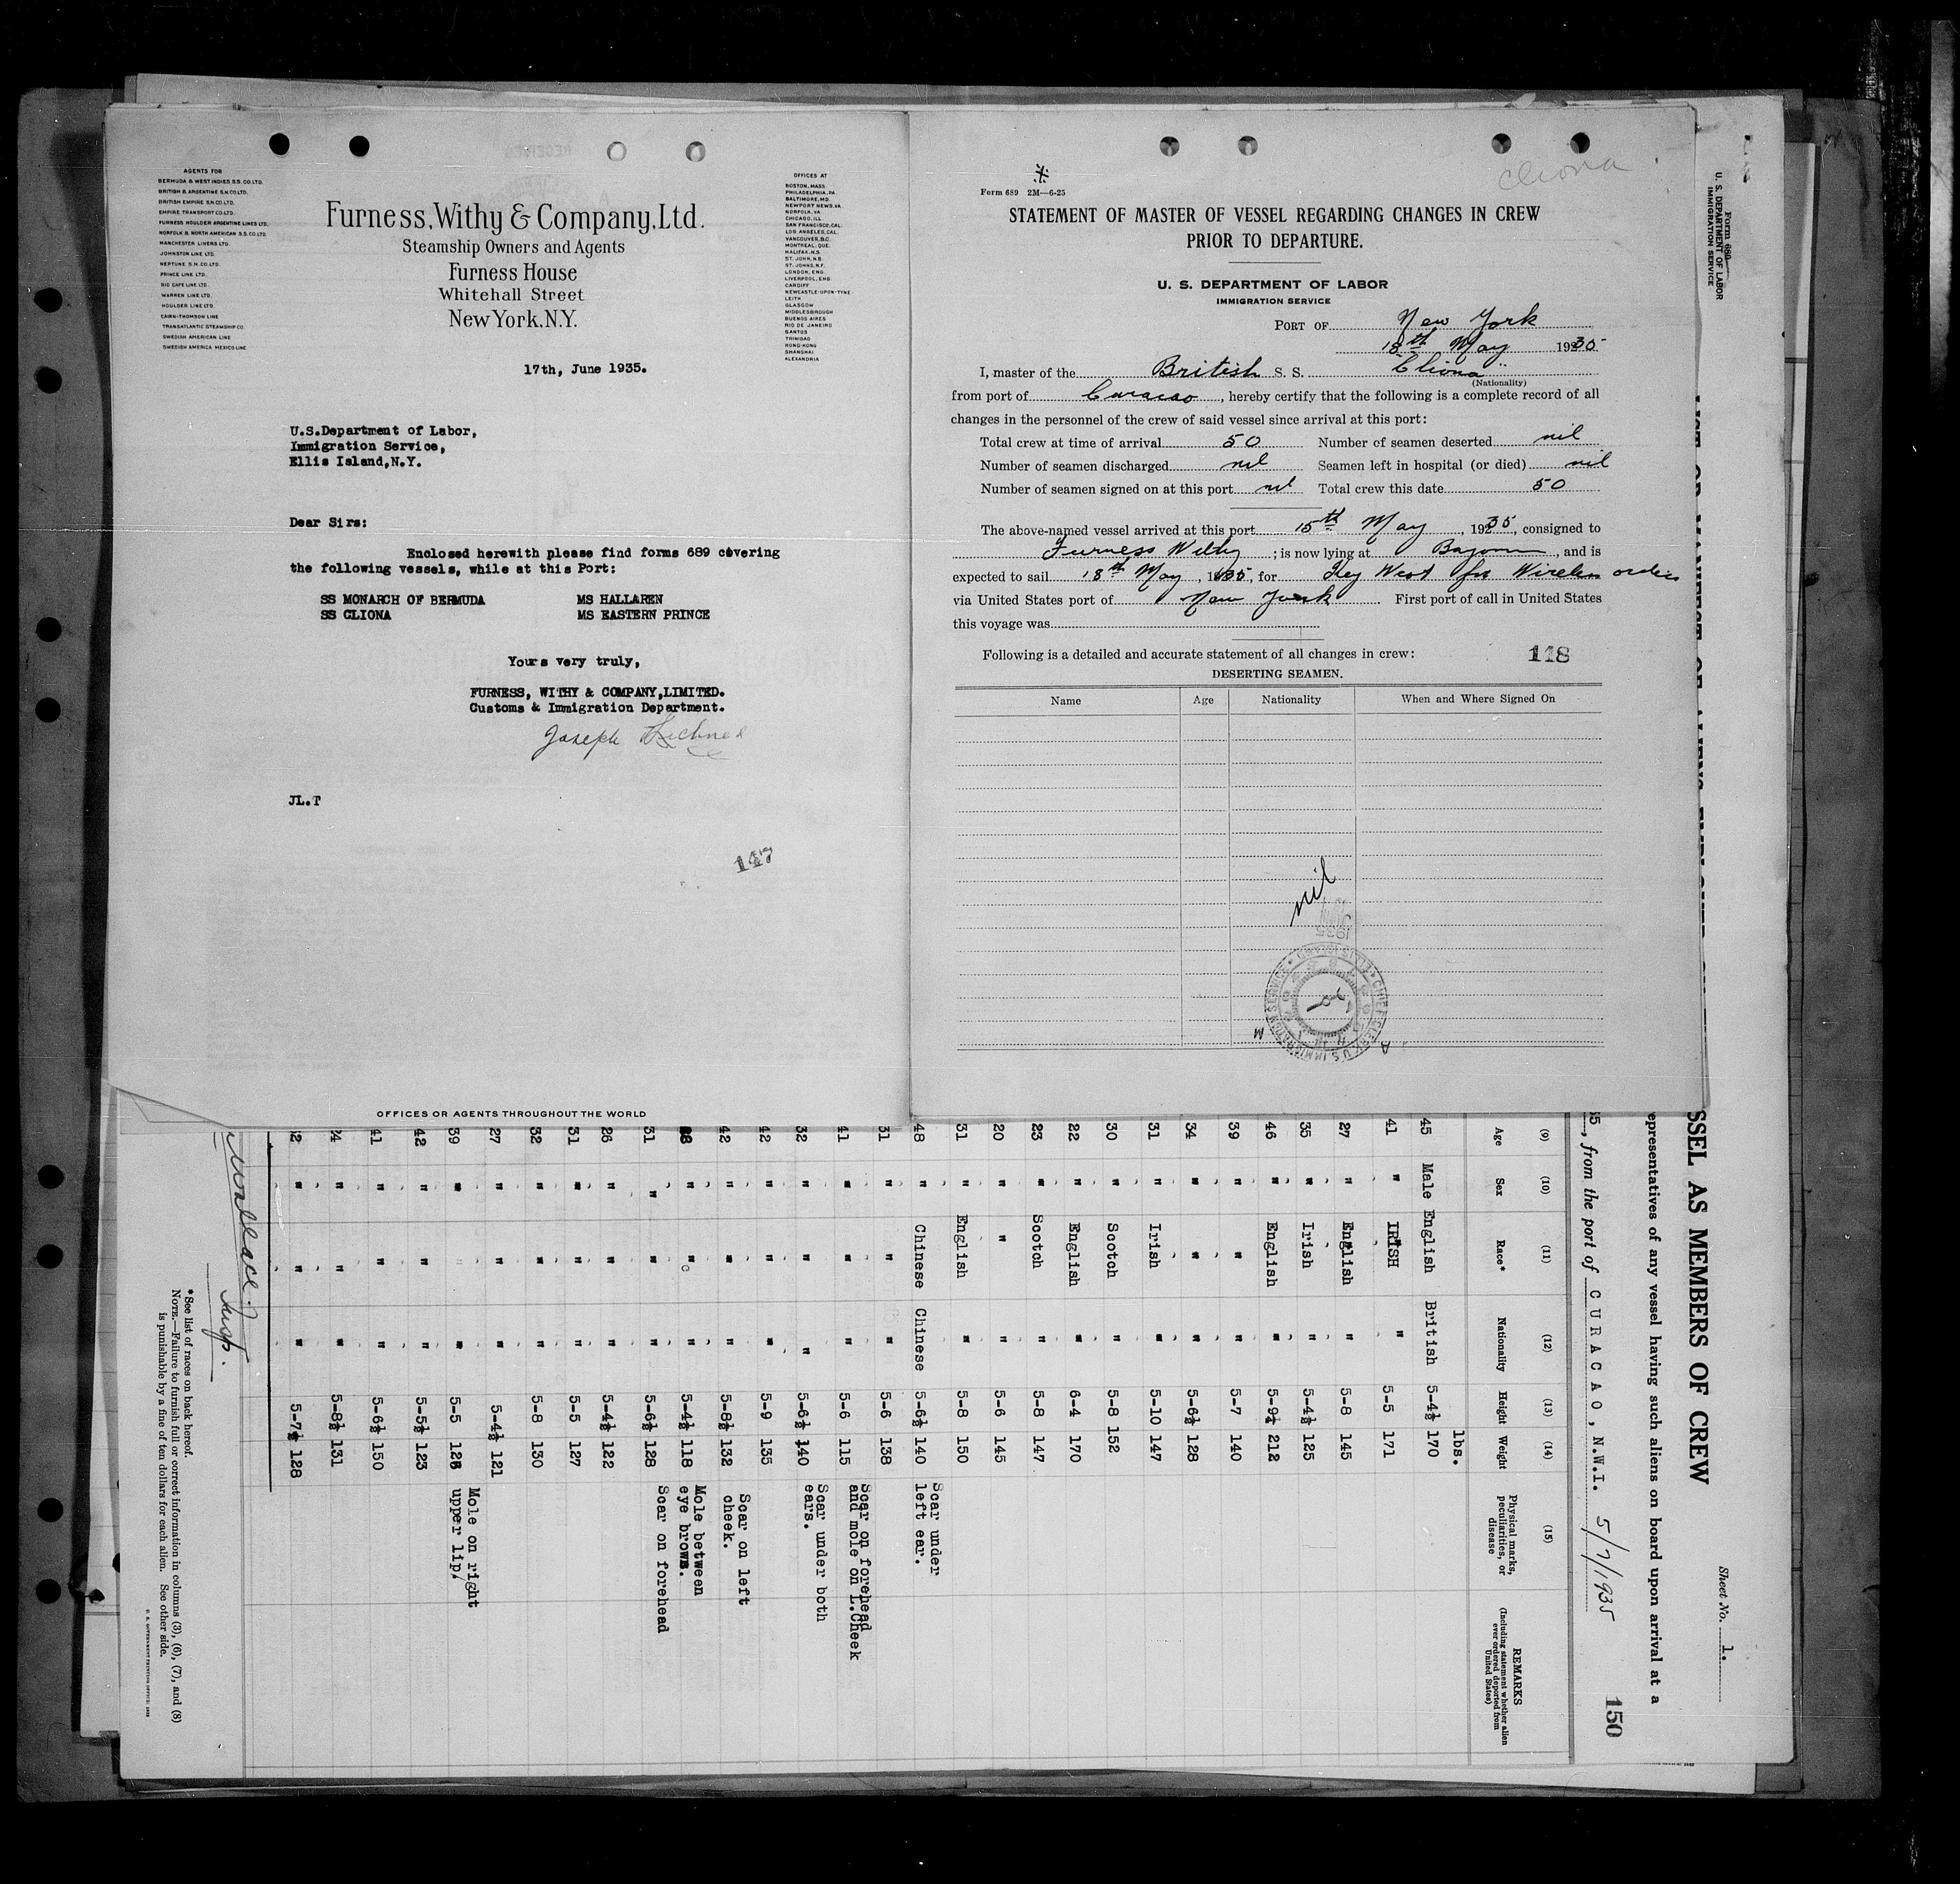 AGENTS FOR
BERMUDA & WEST INDIES S.S. CO. LTD.
BRITISH & ARGENTINE S.N. CO. LTD.
BRITISH EMPIRE S.N. CO. LTD.
EMPIRE TRANSPORT CO. LTD.
FURNESS HOULDER ARGENTINE LINES LTD.
NORFOLK & NORTH AMERICAN S.S. CO. LTD.
MANCHESTER LINERS LTD.
JOHNSTON LINE LTD.
NEPTUNE S.N. CO. LTD.
PRINCE LINE LTD.
RIO CAPE LINE LTD.
WARREN LINE LTD.
HOULDER LINE LTD.
CAIRN-THOMSON LINE
TRANSATLANTIC STEAMSHIP CO.
SWEDISH AMERICAN LINE
SWEDISH AMERICA MEXICO LINE
Furness, Withy & Company, Ltd.
Steamship Owners and Agents
Furness House
Whitehall Street
New York, N.Y.
OFFICES AT
BOSTON, MASS.
PHILADELPHIA, PA.
BALTIMORE, MD.
NEWPORT NEWS, VA.
NORFOLK, VA.
CHICAGO, ILL.
SAN FRANCISCO, CAL.
LOS ANGELES, CAL.
VANCOUVER, B.C.
MONTREAL, QUE.
HALIFAX, N.S.
ST. JOHN, N.B.
ST. JOHNS, N.F.
LONDON, ENG.
LIVERPOOL, ENG.
CARDIFF
NEWCASTLE-UPON-TYNE
LEITH
GLASGOW
MIDDLESBROUGH
BUENOS AIRES
RIO DE JANEIRO
SANTOS
TRINIDAD
HONG-KONG
SHANGHAI
ALEXANDRIA
17th, June 1935.
U.S.Department of Labor,
Immigration Service,
Ellis Island,N.Y.
Dear Sirs:
Enclosed herewith please find forms 689 covering
the following vessels, while at this Port:
SS MONARCH OF BERMUDA MS HALLAREN
SS CLIONA MS EASTERN PRINCE
Yours very truly,
FURNESS, WITHY & COMPANY,LIMITED.
Customs & Immigration Department.
Joseph
JL.T
147
OFFICES OR AGENTS THROUGHOUT THE WORLD
Cliona
Form 689 2M—6-25
STATEMENT OF MASTER OF VESSEL REGARDING CHANGES IN CREW
PRIOR TO DEPARTURE.
U. S. DEPARTMENT OF LABOR
IMMIGRATION SERVICE
PORT OF New York
18th May 1935
I, master of the British S. S. Cliona
(Nationality)
from port of Curacao, hereby certify that the following is a complete record of all
changes in the personnel of the crew of said vessel since arrival at this port:
Total crew at time of arrival 50 Number of seamen deserted nil
Number of seamen discharged nil Seamen left in hospital (or died) nil
Number of seamen signed on at this port nil Total crew this date 50
The above-named vessel arrived at this port 15th May, 1935, consigned to
Furness Withy; is now lying at, and is
expected to sail 18th May, 1935, for Key West for Wireless orders
via United States port of New York First port of call in United States
this voyage was
Following is a detailed and accurate statement of all changes in crew: 118
DESERTING SEAMEN.
Name Age Nationality When and Where Signed On
nil
CHIEF CLERK U.S. IMMIGRATION SERVICE ELLIS ISLAND
Form 680
U. S. DEPARTMENT OF LABOR
IMMIGRATION SERVICE
Sheet No. 1.
SSEL AS MEMBERS OF CREW
epresentatives of any vessel having such aliens on board upon arrival at a
35, from the port of CURACAO, N.W.I. 5/7/1935
150
(9) (10) (11) (12) (13) (14) (15)
Age Sex Race* Nationality Height Weight Physical marks, peculiarities, or disease REMARKS (Including statement whether alien ever ordered deported from United States)
lbs.
45 Male English British 5-4½ 170
41 " IRISH " 5-5 171
27 " English " 5-8 145
35 " Irish " 5-4½ 125
46 " English " 5-9¼ 212
39 " " " 5-7 140
34 " " " 5-6½ 128
31 " Irish " 5-10 147
30 " Scotch " 5-8 152
22 " English " 6-4 170
23 " Scotch " 5-8 147
20 " " " 5-6 145
31 " English " 5-8 150
48 " Chinese Chinese 5-6½ 140 Scar under left ear.
31 " " " 5-6 138
41 " " " 5-6 115 Scar on forehead and mole on L.Cheek
32 " " " 5-6½ 140 Scar under both ears.
42 " " " 5-9 135
42 " " " 5-8½ 132 Scar on left cheek.
" " " 5-4½ 118 Mole between eye brows.
31 " " " 5-6½ 128 Scar on forehead
26 " " " 5-4½ 122
31 " " " 5-5 127
32 " " " 5-8 130
27 " " " 5-4½ 121
39 " " 5-5 Mole on right upper lip.
42 " " " 5-5½ 123
41 " " " 5-6½ 150
24 " " " 5-8½ 131
" " " 5-7½ 128
Wallace. Insp.
*See list of races on back hereof.
NOTE.—Failure to furnish full or correct information in columns (3), (6), (7), and (8)
is punishable by a fine of ten dollars for each alien. See other side.
U. S. GOVERNMENT PRINTING OFFICE